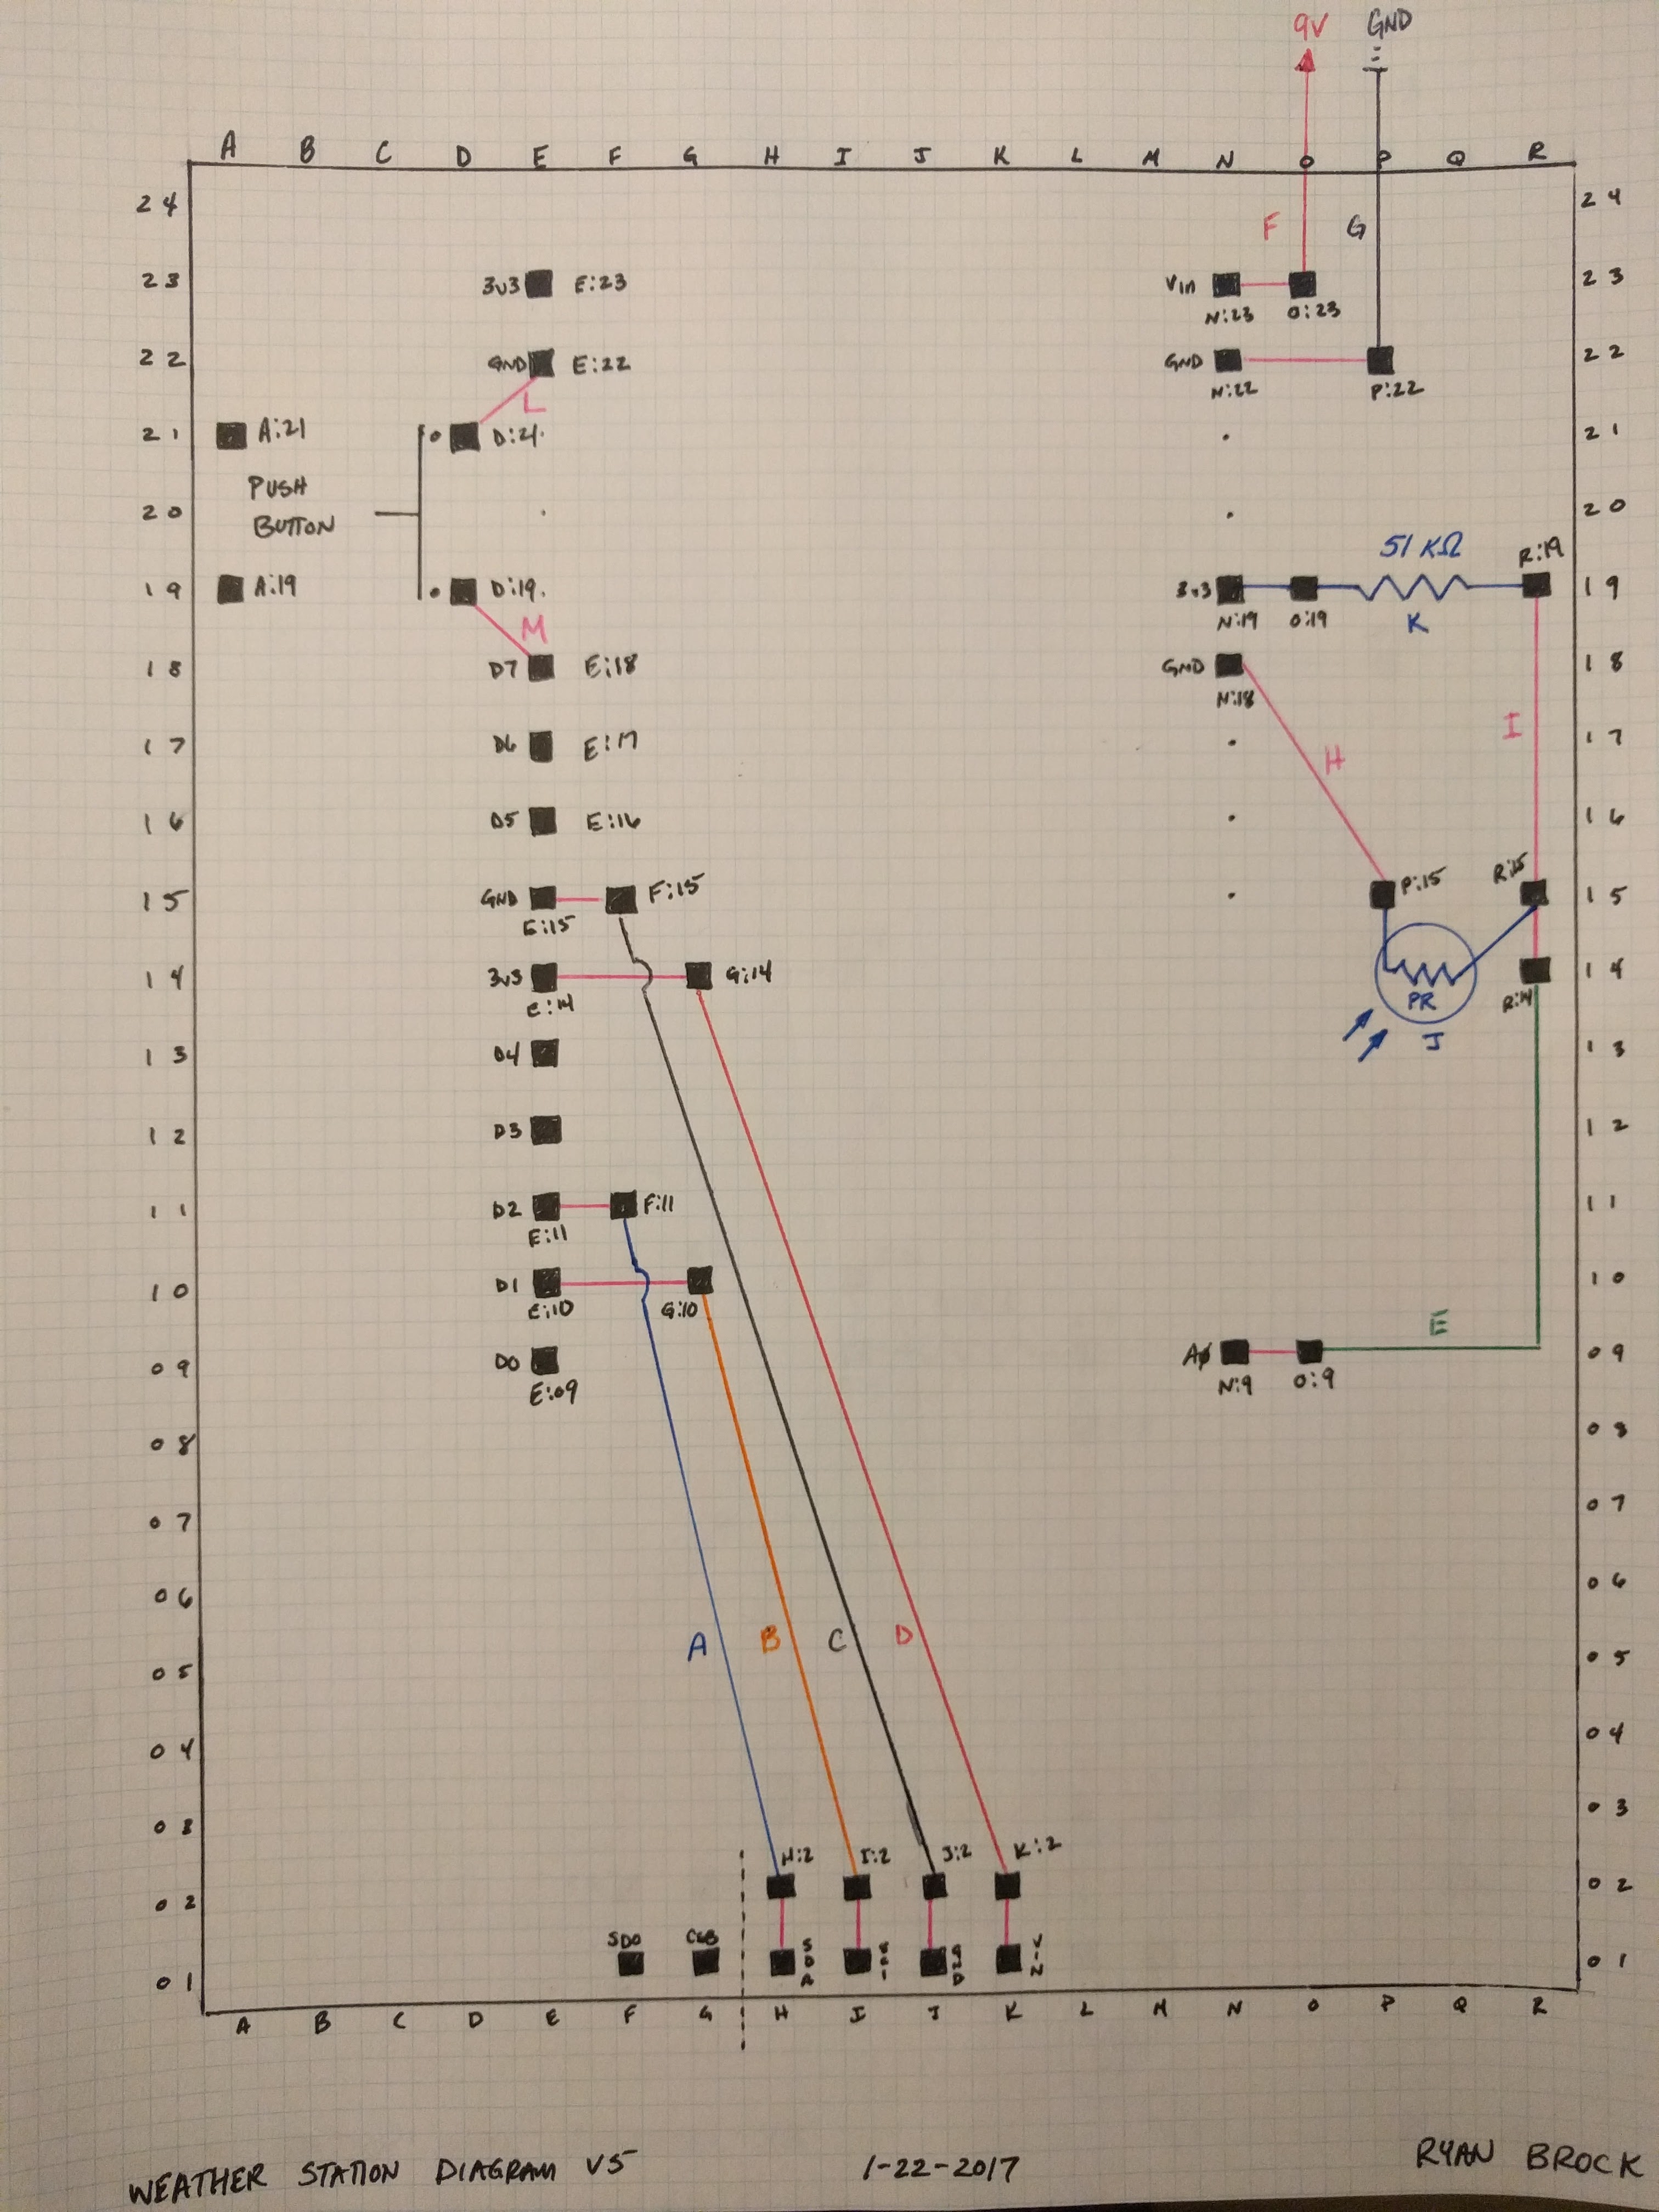 9V GND
A B C D E F G H I J K L M N O P Q R
24 24
F G
23 3v3 E:23 Vin 23
N:23 O:23
22 GND E:22 GND 22
L N:22 P:22
21 A:21 D:21 21
PUSH
20 20
BUTTON
51 KΩ R:19
19 A:19 D:19 3v3 19
M N:19 O:19 K
18 D7 E:18 GND 18
N:18
I
17 D6 E:17 17
H
16 D5 E:16 16
15 GND F:15 P:15 R:15 15
E:15
14 3v3 G:14 14
E:14 PR R:14
J
13 D4 13
12 D3 12
11 D2 F:11 11
E:11
10 D1 10
E:10 G:10
E
09 D0 AØ 09
E:09 N:9 O:9
08 08
07 07
06 06
A B C D
05 05
04 04
03 03
H:2 I:2 J:2 K:2
02 02
SDO CSB
01 SDA GND VIN 01
A B C D E F G H I J K L M N O P Q R
WEATHER STATION DIAGRAM V5 1-22-2017 RYAN BROCK